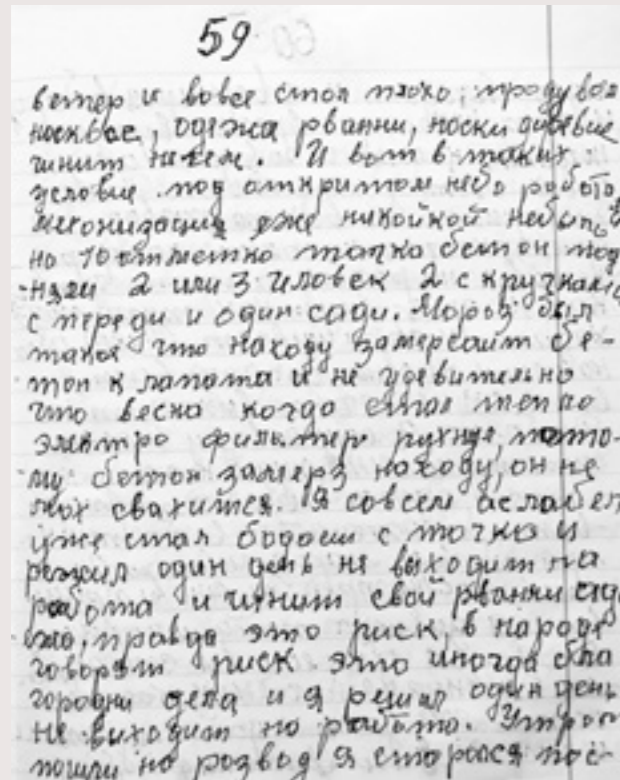 59
ветер и вовсе стол плохо, продувал
носквос, одежа рванни, носки дуревие
чинит нечем. И вот в таких
условие под аткритом небо работа
мегонизация уже никойкой небыло
на 10 отметко тачко бетон под
няли 2 или 3 человек 2 с кручками
с переди и один сади. Мороз был
такое что находу замерсаит бе-
тон к лапата и не удевительно
что весна когда стал тепло
электро фильтер рухнул, пото-
му бетон замерз находу, он не
мох свахится. Я совсем аслабел
уже стал бодаеш с тачко и
режил один день не выходит на
работа и чинит свой рванни оде
жа, правда это риск, в народе
говорят риск это иногда бла
городни дела и я решил один день
не виходит но работо. Утром
пошли но розвод я сторолся пос-